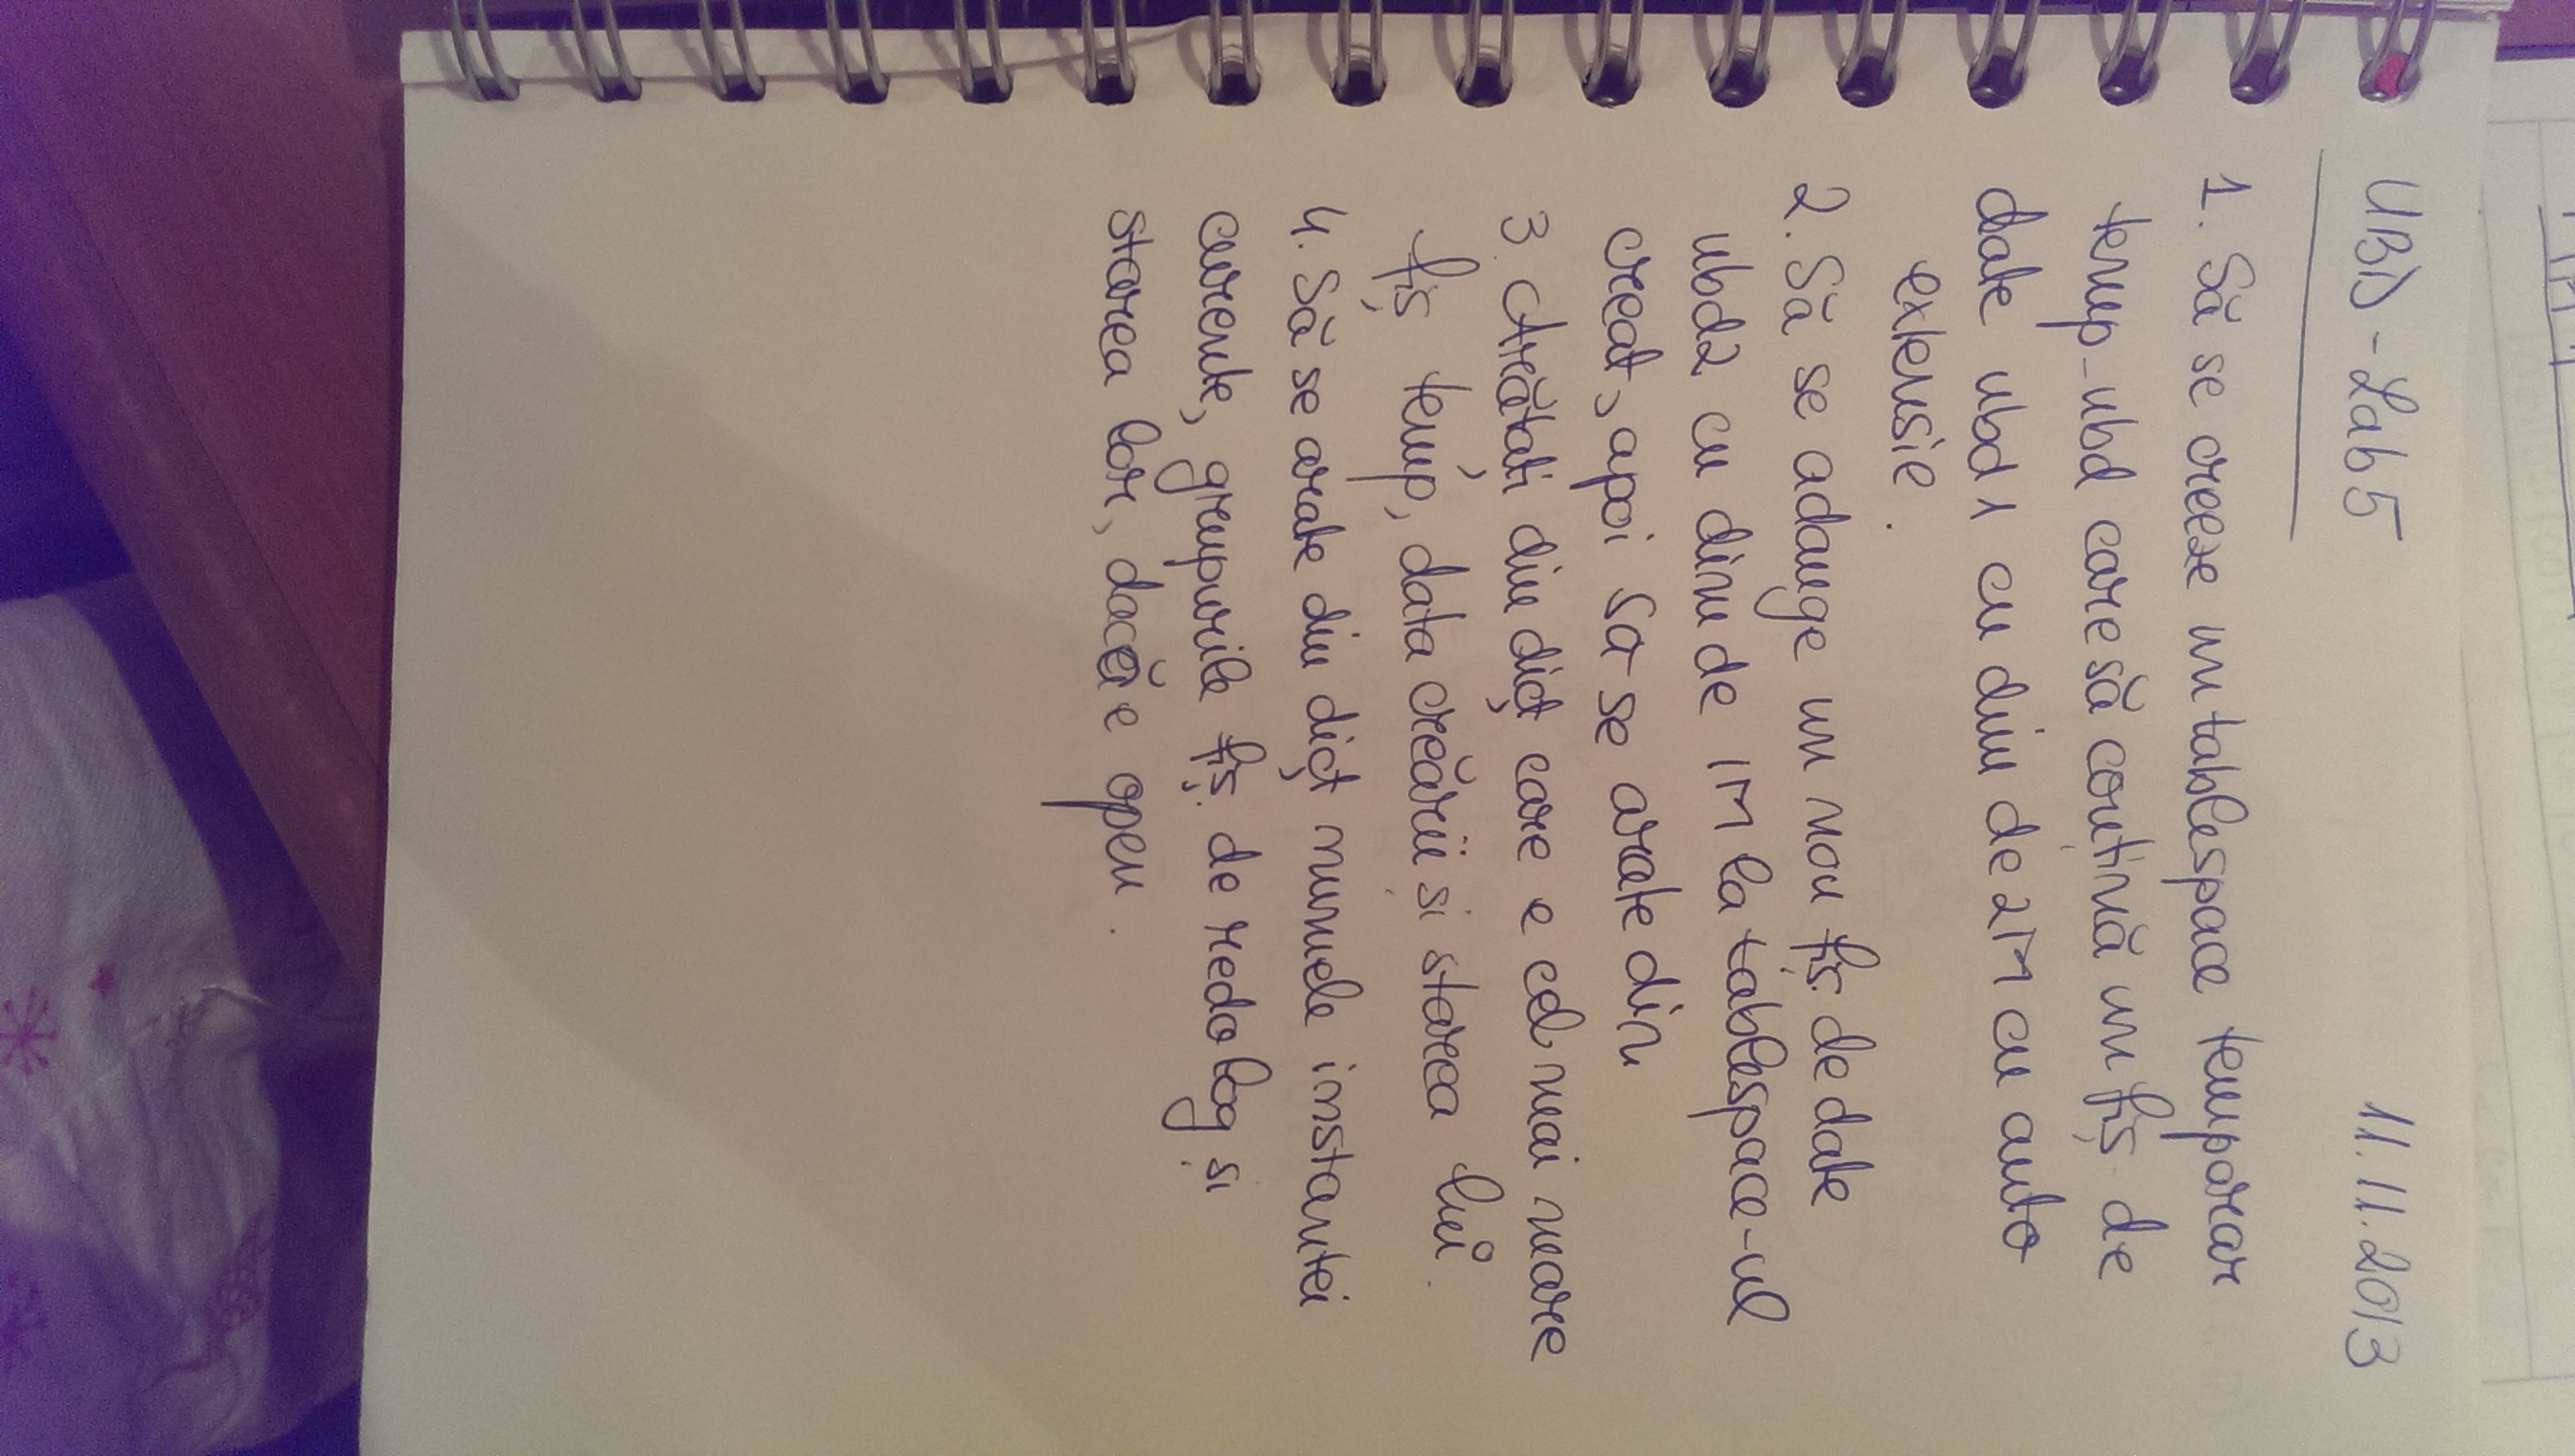 UBD - Lab 5 11.11.2013
1. Să se creeze un tablespace temporar
temp-ubd care să conțină un fiș de
date ubd1 cu dim de 2M cu auto
extensie.
2. Să se adauge un nou fiș. de date
ubd2 cu dim de 1M la tablespace-ul
creat, apoi sa se arate din
3. Arătați din dicț care e cel mai mare
fiș temp, data creării și starea lui.
4. Să se arate din dicț numele instantei
curente, grupurile fiș. de redo log și
starea lor, dacă e open.